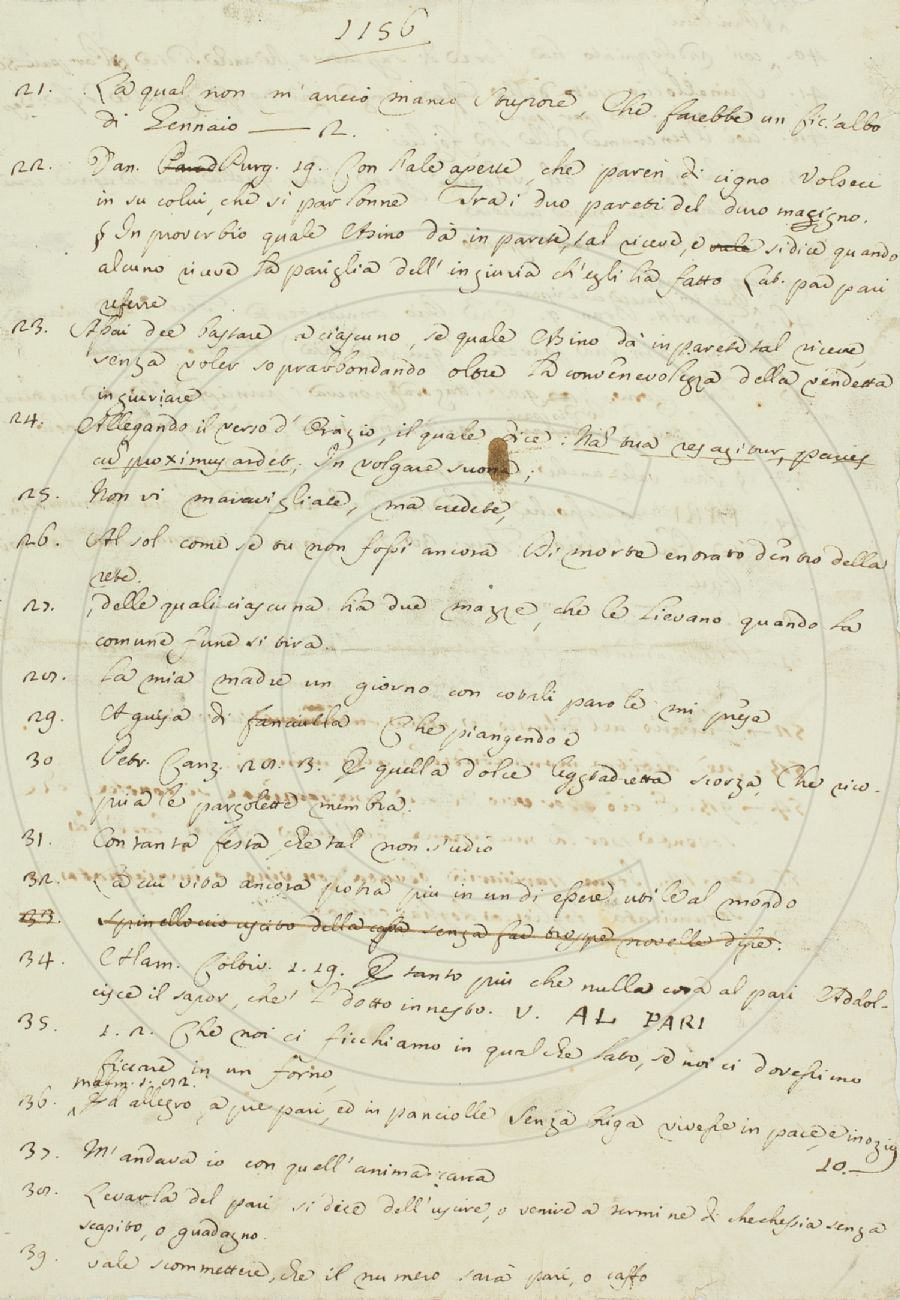 1156
21. La qual non m'arreca manco stupore, Che farebbe un fic'albo
di Gennaio — 2.
22. Dan. Purg. 19. Con l'ale aperte, che parén di cigno Volseci
in su colui, che sì parlonne Tra i duo pareti del duro macigno.
§ In proverbio quale Asino dà in parete, tal riceve, e vale si dice quando
alcuno riceve la pariglia dell'ingiuria ch'egli ha fatto Lat. par pari
referre
23. Assai dee bastare a ciascuno, se quale Asino dà in parete tal riceve,
senza voler soprabbondando oltre la convenevolezza della vendetta
ingiuriare
24. Allegando il verso d'Orazio, il quale dice: Nã tua res agitur, paries
cũ proximus ardet, In volgare suona;
25. Non vi maravigliate, ma credete,
26. Al sol come se tu non fossi ancora Di morte entrato dentro della
rete.
27. delle quali ciascuna ha due mazze, che le lievano quando la
comune fune si tira.
28. La mia madre un giorno con cotali parole mi prese
29. A guisa di fanciulla Che piangendo e
30 Petr. Canz. 28. 3. E quella dolce leggiadretta scorza, Che rico-
pria le pargolette membra.
31. Con tanta festa, che tal non s'udio
32. La cui vita ancora potrà più in un dì essere utile al mondo
33. Spinelloccio uscito della cassa senza far troppe novelle disse:
34. Alam. Coltiv. 1. 19. E tanto più che nulla cura al pari Addol-
cisce il sapor, che'l dotto innesto. V. AL PARI
35. 1. 2. Che noi ci ficchiamo in qualche lato, se noi ci dovessimo
ficcare in un forno,
Malm. 1. 82.
36. Ed allegro, a piè pari, ed in panciolle Senza briga vivesse in pace, e in ozio
10.—
37. M'andava io con quell'anima carca
38. Levarla del pari si dice dell'uscire, o venire a termine di checchessia senza
scapito, o guadagno.
39. vale scommettere, che il numero sarà pari, o caffo